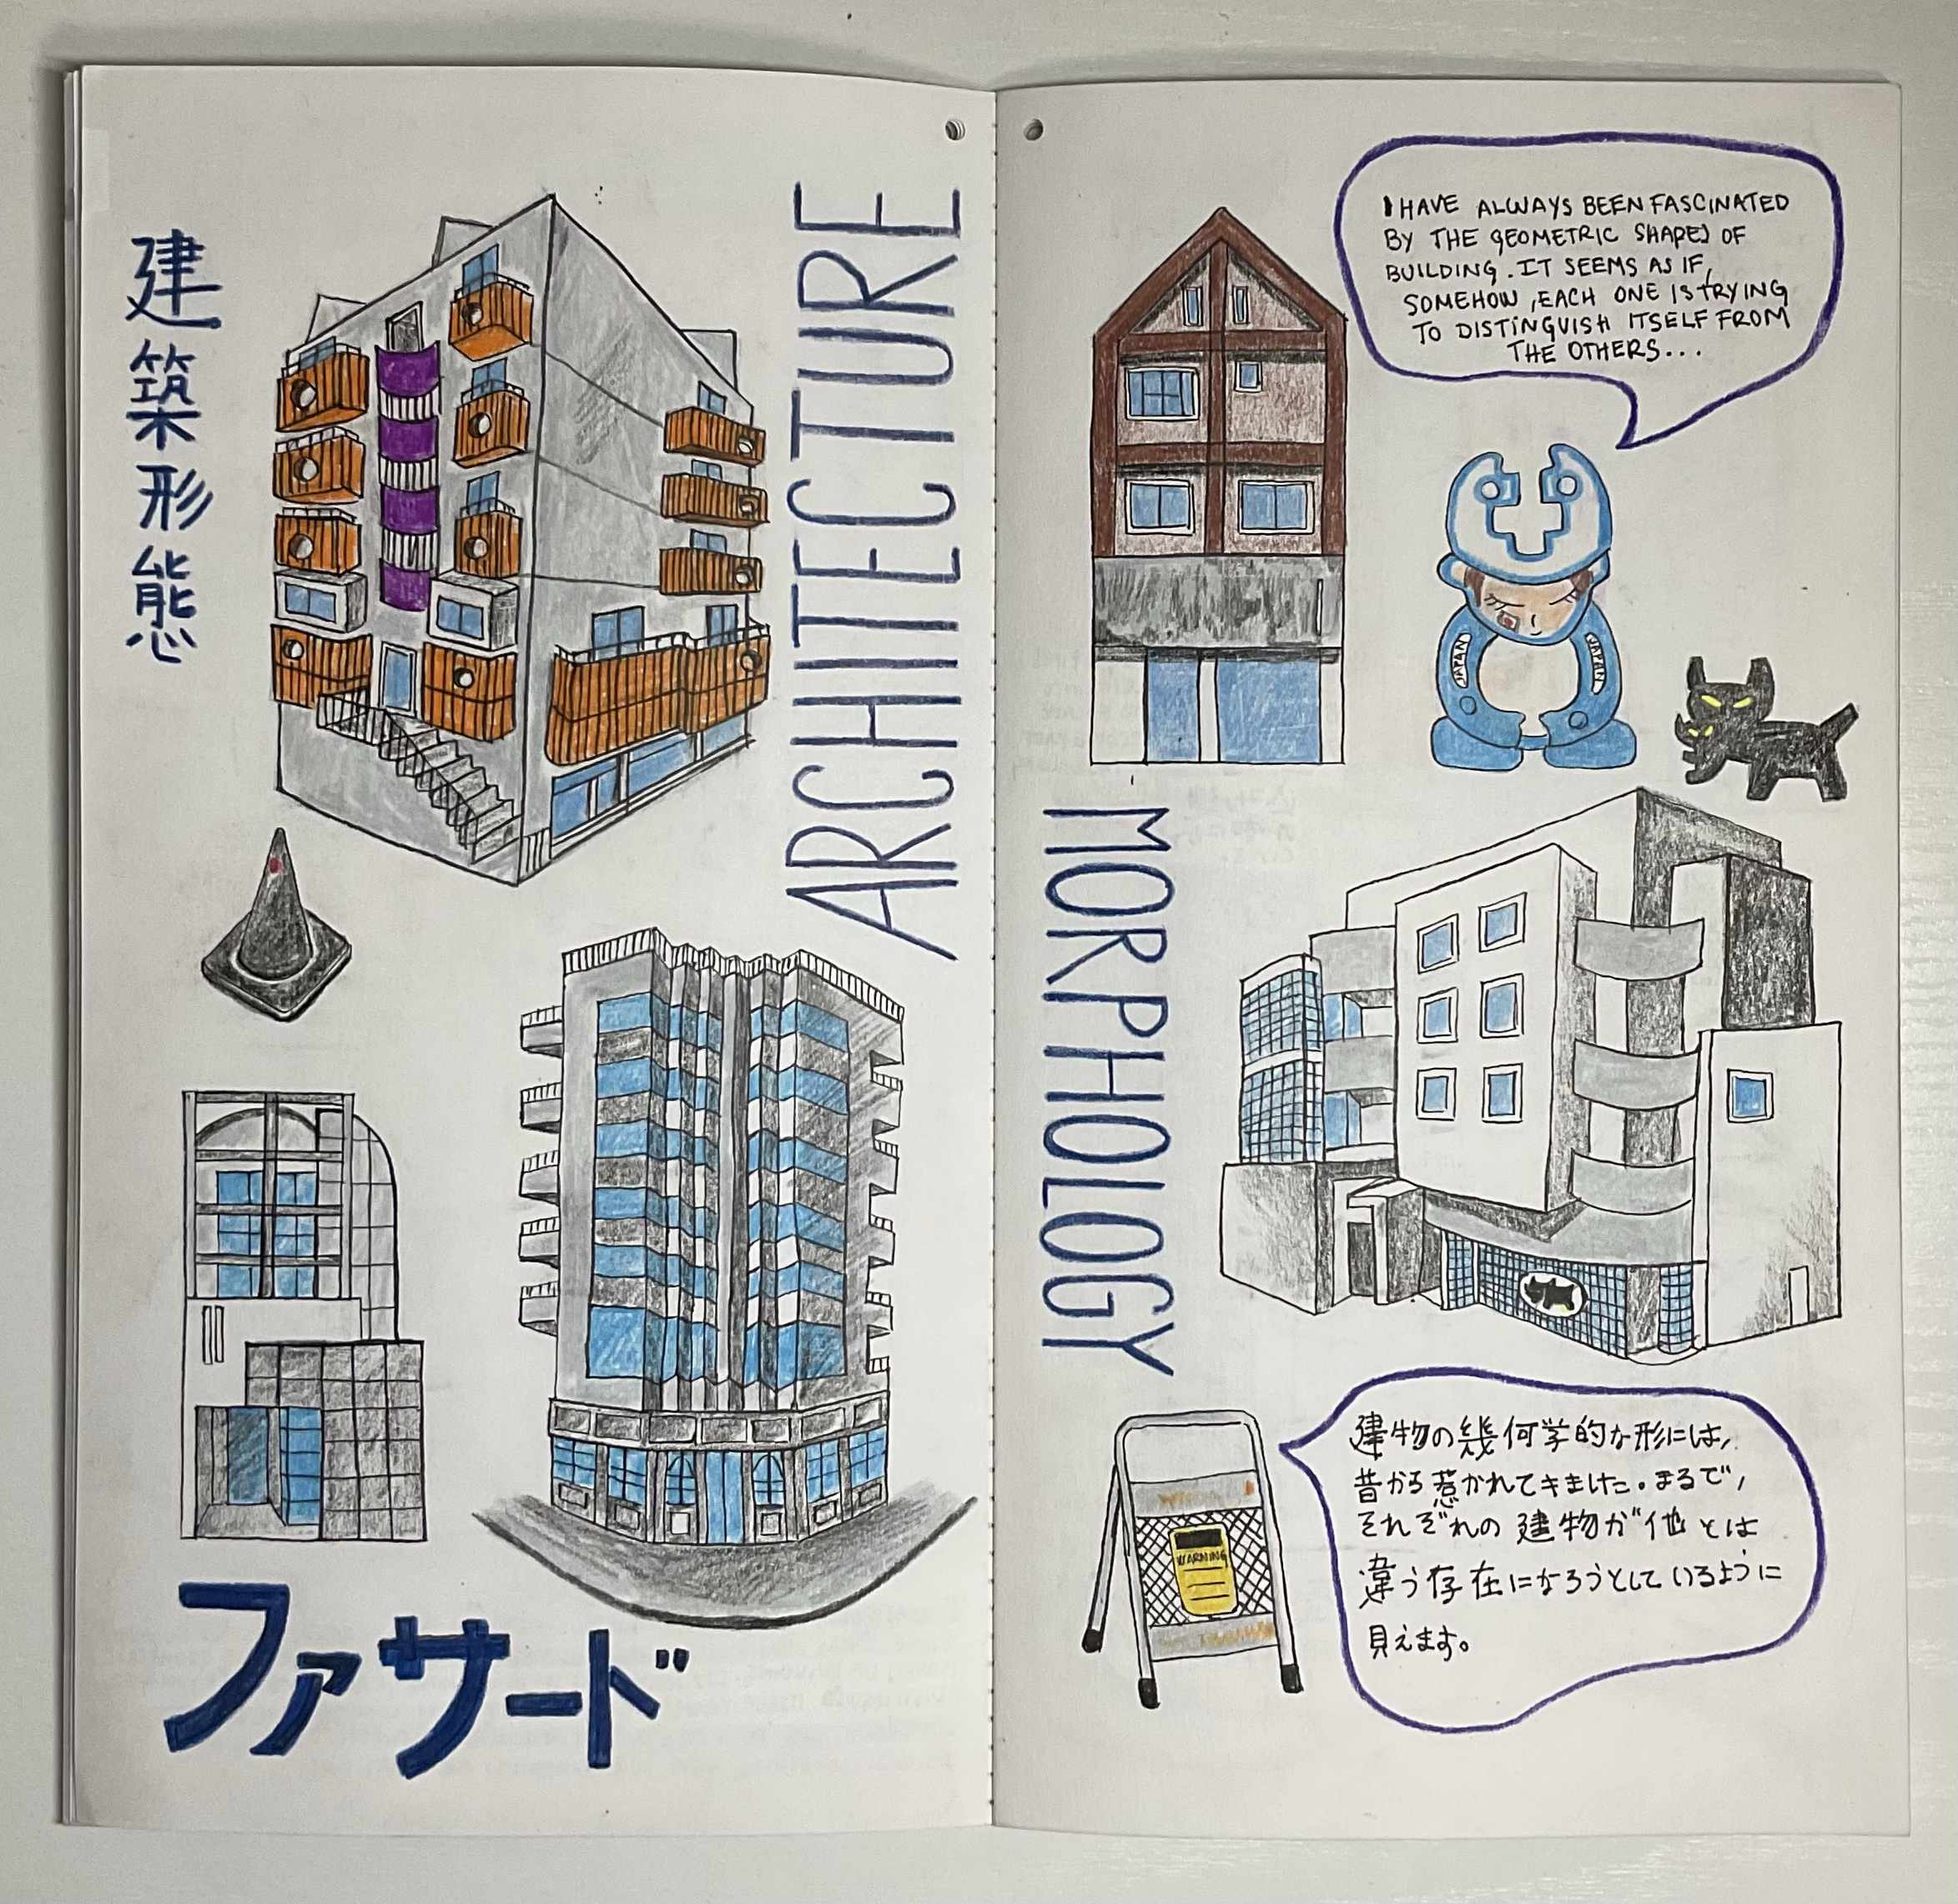 建築形態
ARCHITECTURE
ファサード
I HAVE ALWAYS BEEN FASCINATED
BY THE GEOMETRIC SHAPES OF
BUILDING. IT SEEMS AS IF,
SOMEHOW, EACH ONE IS TRYING
TO DISTINGUISH ITSELF FROM
THE OTHERS...
JAPAN
JAPAN
MORPHOLOGY
WARNING
建物の幾何学的な形には,
昔から惹かれてキました。まるで,
それぞれの建物が他とは
違う存在になろうとしているように
見えます。